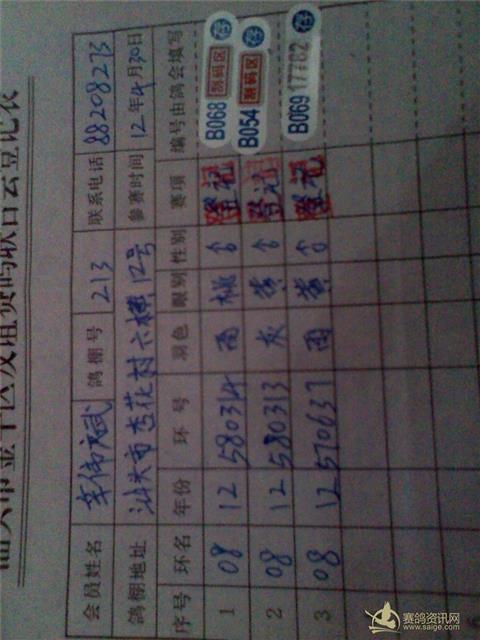 会员姓名 鸽棚号 213 联系电话 88208273
鸽棚地址 汕头市杏花村六横12号 参赛时间 12年4月30日
序号 环名 年份 环号 羽色 眼别 性别 赛项 编号由鸽会填写
1 08 12 580314 雨 桃 个 登记 B068 刮码区
2 08 12 580313 灰 黄 个 登记 B054 刮码区
3 08 12 570637 雨 黄 个 登记 B069 17782
赛鸽资讯网
www.saige.com